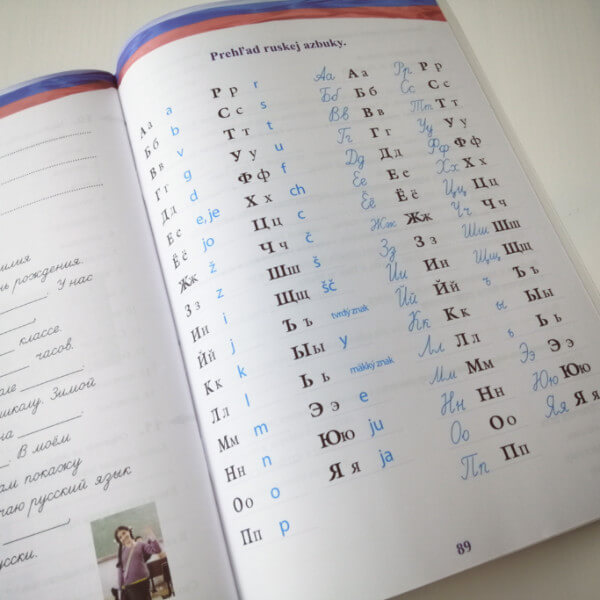 илия
нь рождения.
. У нас
классе.
часов.
але
школу. Зимой
на
: В моём
ам покажу
чаю русский язык
усски.
Prehľad ruskej azbuky.
Аа a Рр r Аа Аа Рр Рр
Бб b Сс s Бб Бб Сс Сс
Вв v Тт t Вв Вв Тт Тт
Гг g Уу u Гг Гг Уу Уу
Дд d Фф f Дд Дд Фф Фф
Ее e, je Хх ch Ее Ее Хх Хх
Ёё jo Цц c Ёё Ёё Цц Цц
Жж ž Чч č Жж Жж Чч Чч
Зз z Шш š Зз Зз Шш Шш
Ии i Щщ šč Ии Ии Щщ Щщ
Йй j Ъъ tvrdý znak Йй Йй ъ Ъъ
Кк k Ыы y Кк Кк ы Ыы
Лл l Ьь mäkký znak Лл Лл ь Ьь
Мм m Ээ e Мм Мм Ээ Ээ
Нн n Юю ju Нн Нн Юю Юю
Оо o Яя ja Оо Оо Яя Яя
Пп p Пп Пп
89